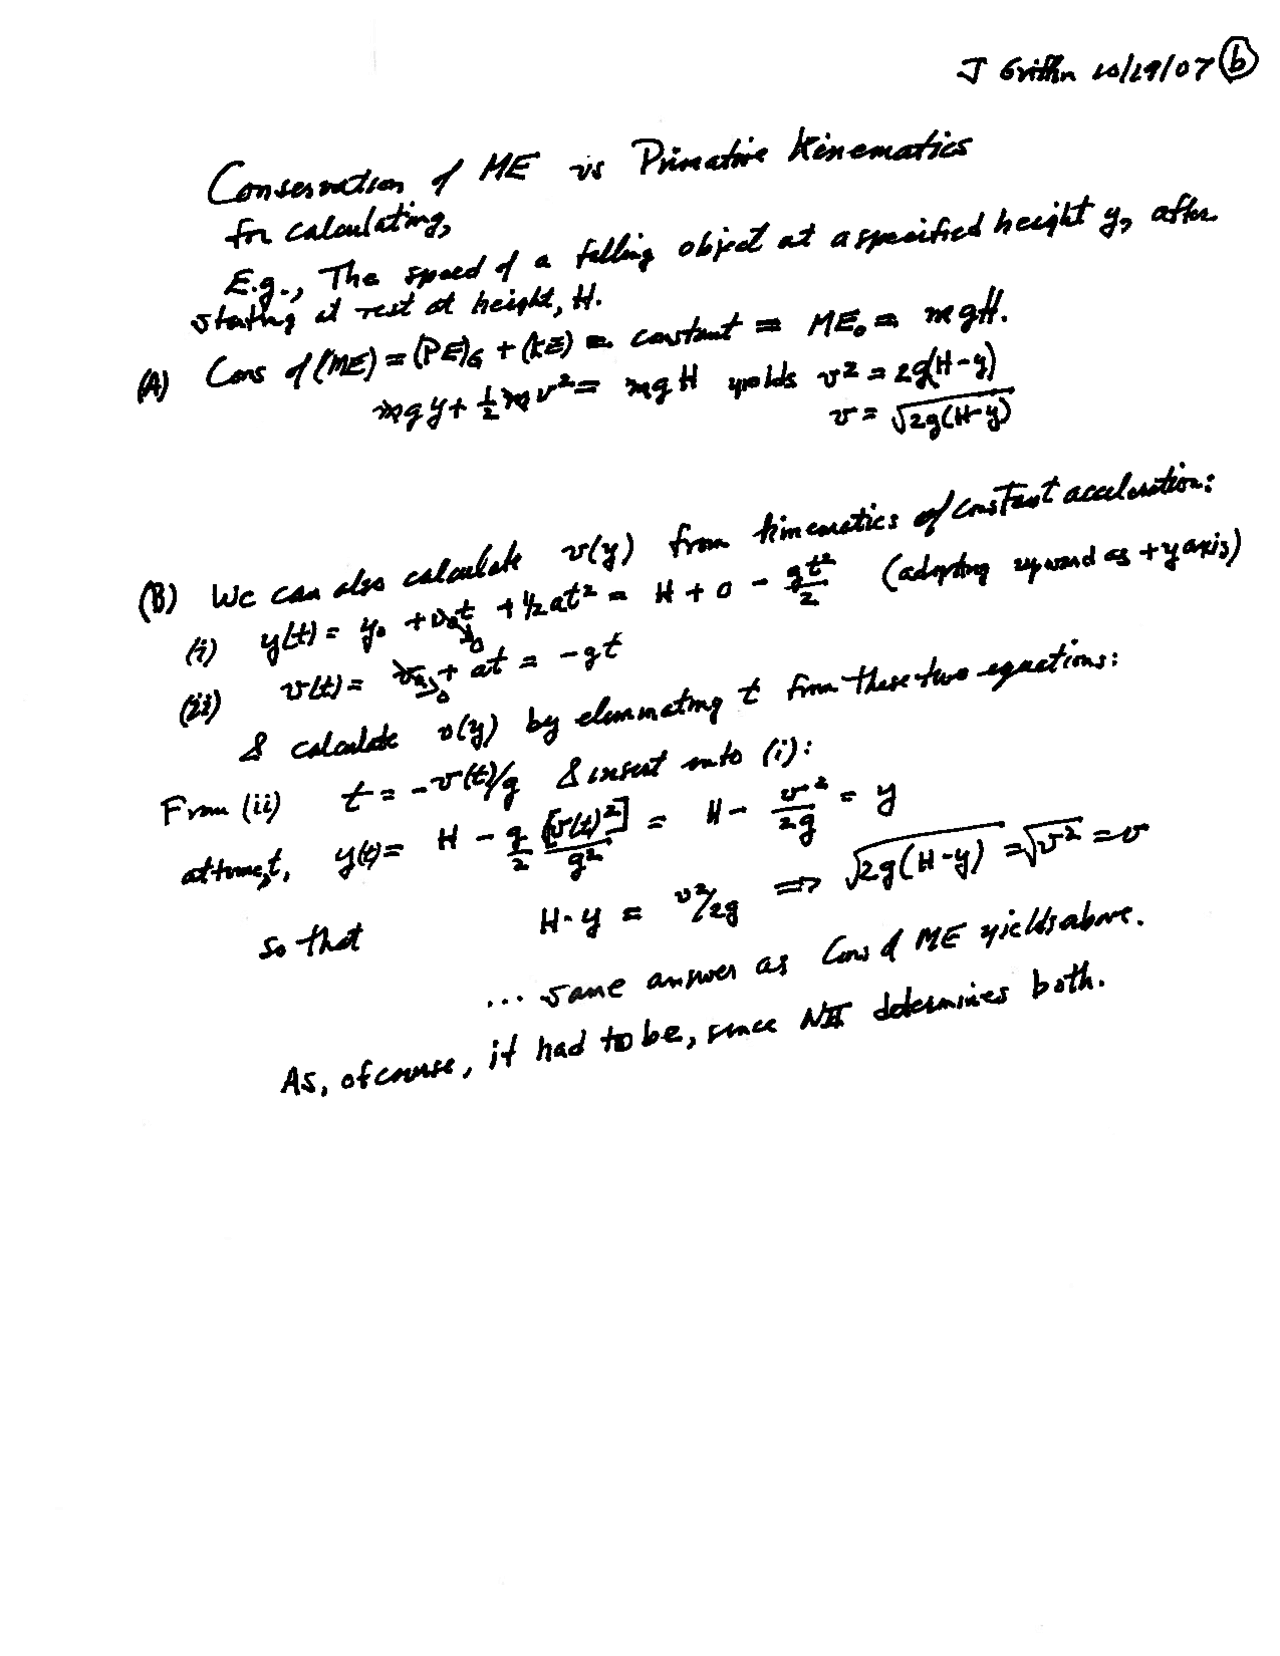 J Griffin 10/29/07 (b)
Conservation of ME vs Primative Kinematics
for calculating,
E.g., The speed of a falling object at a specified height y, after
starting at rest at height, H.
(A) Cons of (ME) = (PE)G + (KE) = constant = ME₀ = mgH.
mgy + ½mv² = mgH yields v² = 2g(H-y)
v = √2g(H-y)
(B) We can also calculate v(y) from kinematics of constant acceleration:
(i) y(t) = y₀ + v₀t + ½at² = H + 0 - gt²/2 (adopting upward as +y axis)
(ii) v(t) = v₀ + at = -gt
& calculate v(y) by eliminating t from these two equations:
From (ii) t = -v(t)/g & insert into (i):
at time, t, y(t) = H - g/2 [v(t)²]/g² = H - v²/2g = y
so that H-y = v²/2g ⇒ √2g(H-y) = √v² = v
... same answer as Cons of ME yields above.
As, of course, it had to be, since NII determines both.